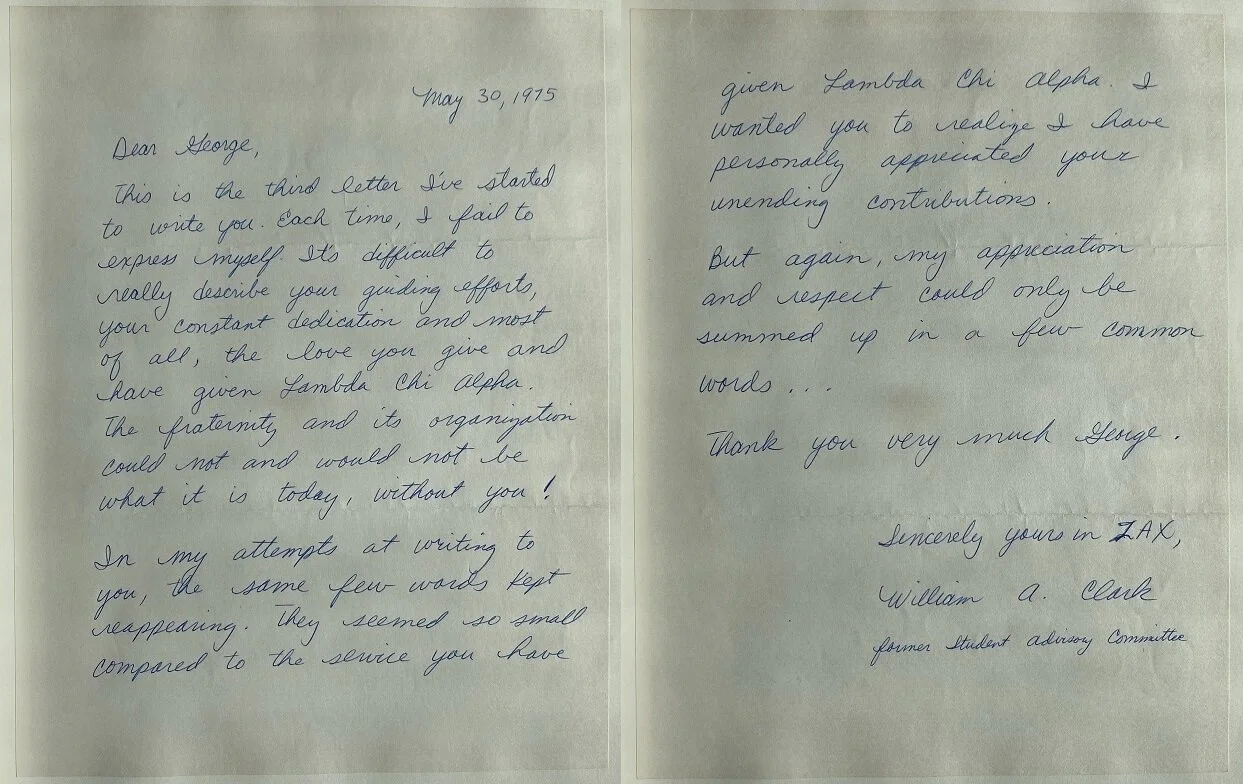 May 30, 1975
Dear George,
This is the third letter I've started
to write you. Each time, I fail to
express myself. It's difficult to
really describe your guiding efforts,
your constant dedication and most
of all, the love you give and
have given Lambda Chi Alpha.
The fraternity and its organization
could not and would not be
what it is today, without you!
In my attempts at writing to
you, the same few words kept
reappearing. They seemed so small
compared to the service you have
given Lambda Chi Alpha. I
wanted you to realize I have
personally appreciated your
unending contributions.
But again, my appreciation
and respect could only be
summed up in a few common
words ...
Thank you very much George.
Sincerely yours in ZAX,
William A. Clark
former Student Advisory Committee